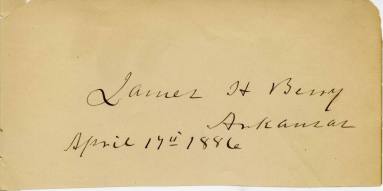 James H Berry
Arkansas
April 17th 1886